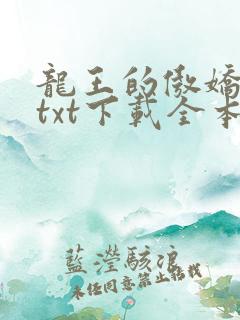 龍王的傲嬌
txt下載全本
藍瀅駭浪
未经同意禁止转载